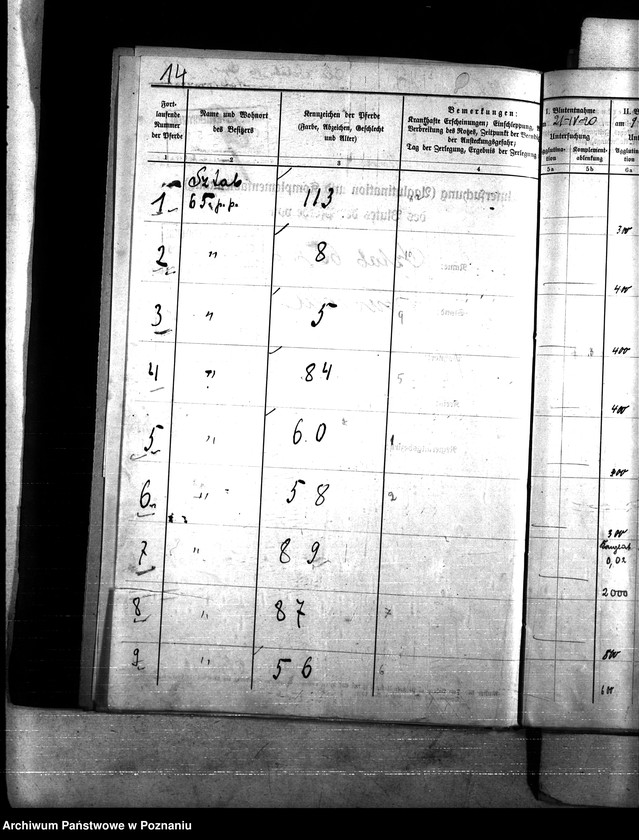 14
Fort-
laufende
Nummer
der Pferde
Name und Wohnort
des Besitzers
Kennzeichen der Pferde
(Farbe, Abzeichen, Geschlecht
und Alter)
Bemerkungen:
Krankhafte Erscheinungen; Einschleppung,
Verbreitung des Rotzes, Zeitpunkt der
der Ansteckungsgefahr;
Tag der Zerlegung, Ergebnis der Zerlegung
I. Blutentnahme
21-IV-20
Untersuchung
Komplement-
ablenkung
II. B
am 9
Unt
Agglutina
tion
1 2 3 4 5a 5b 6a
Sztab
1 113
300
2 " 8
400
3 " 5
400
4 " 84
400
5 " 60
300
6 " 58
300
7 " 89
0,02
2000
8 " 87
500
9 " 56
600
Archiwum Państwowe w Poznaniu